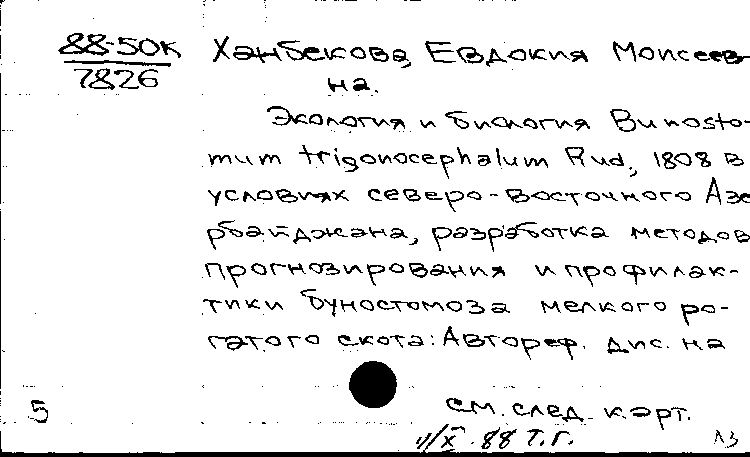 88-50к Ханбекова, Евдокия Моисеев-
7826 на.
Экология и биология Bunosto-
mum trigonocephalum Rud, 1808 в
условиях северо-восточного Азе
рбайджана, разработка методов
прогнозирования и профилак-
тики буностомоза мелкого ро-
гатого скота: Автореф. дис. на
5 см. след. карт.
/X 88 Т.Г.